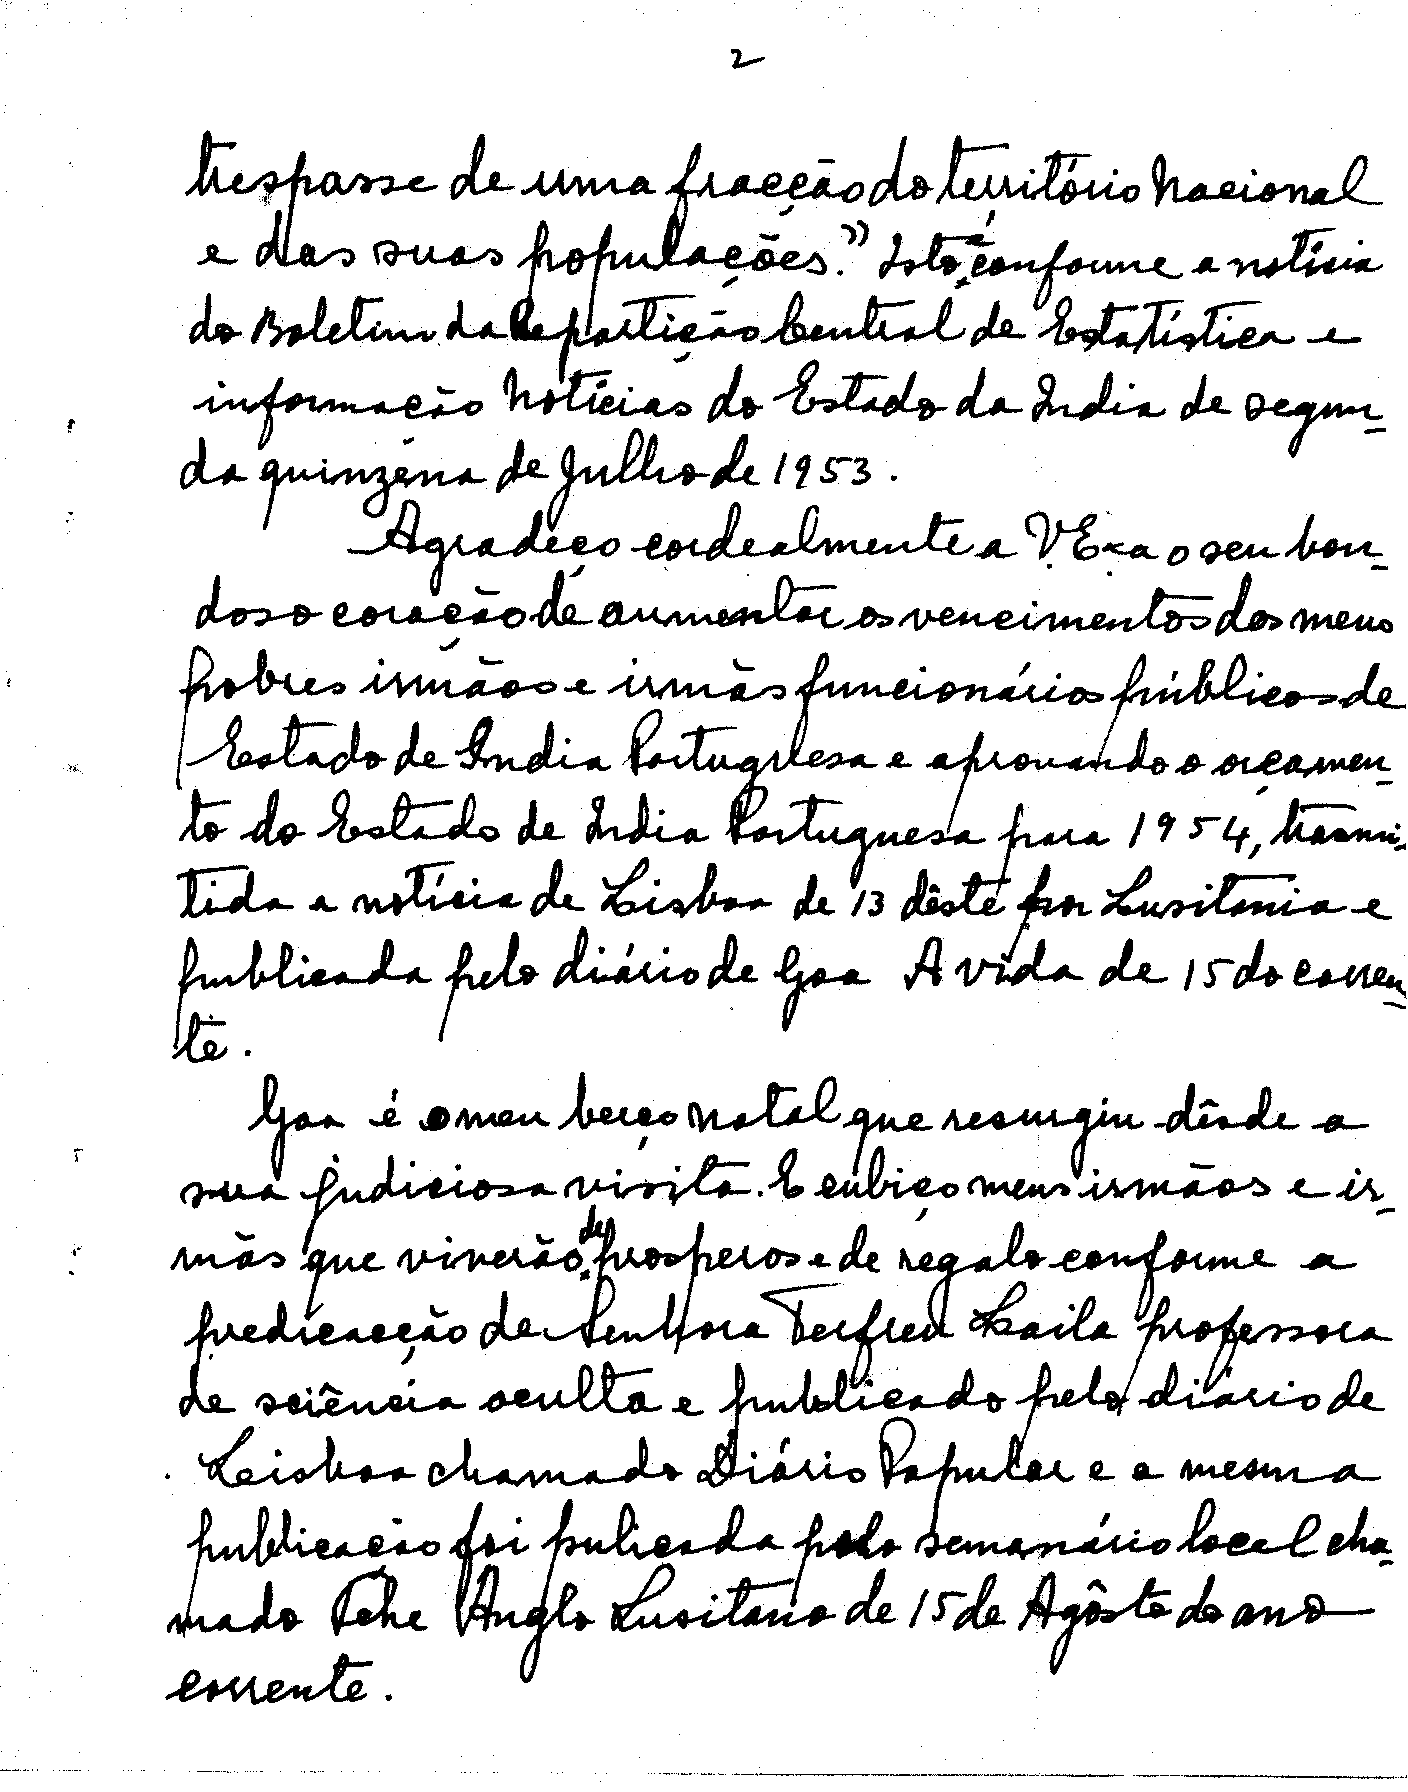 2
trespasse de uma fracção do território Nacional
e das suas populações." Isto é, conforme a notícia
do Boletim da Repartição Central de Estatística e
informação Notícias do Estado da India de segun-
da quinzena de Julho de 1953.
Agradeço cordealmente a V. Exa o seu bon-
doso coração de aumentar os vencimentos dos meus
pobres irmãos e irmãs funcionários públicos de
Estado de India Portuguesa e aprovando o orçamen-
to do Estado de India Portuguesa para 1954, transmi-
tida a notícia de Lisboa de 13 dêste por Lusitania e
publicada pelo diário de Goa A vida de 15 do corren-
te.
Goa é o meu berço natal que resurgiu dêsde a
sua judiciosa visita. E cubiço meus irmãos e ir-
mãs que viverão de prosperos e de regalo conforme a
predicacção de Senhora Laila professora
de sciência oculta e publicado pelo diário de
Lisboa chamado Diário Popular e a mesma
publicação foi pulicada pelo semanário local cha-
mado The Anglo Lusitano de 15 de Agôsto do ano
corrente.